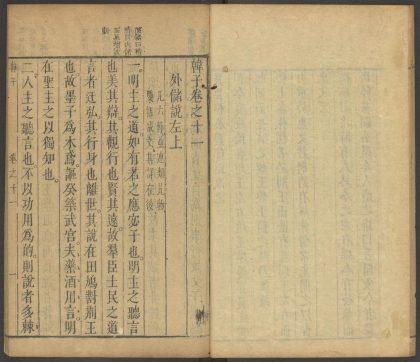 韓子卷之十一
外儲說左上
凡六條並連類比物
一明主之道如有若之應宓子也明主之聽言
也美其辯其觀行也賢其遠故羣臣士民之道
言者迂弘其行身也離世其說在田鳩對荊王
也故墨子為木鳶謳癸築武宮夫藥酒用言明
在聖主之以獨知也
二人主之聽言也不以功用為的則說者多棘
韓子 卷之十一 一